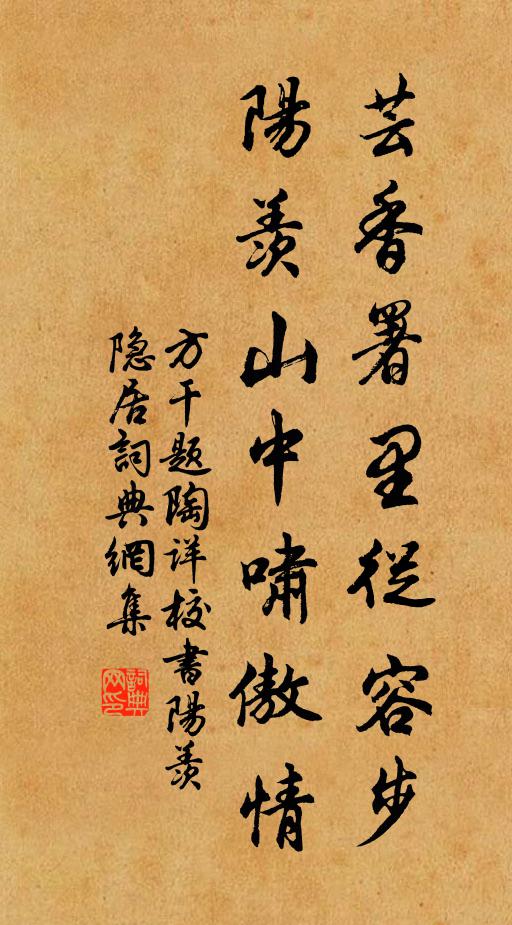 芸香署里從容步
陽羨山中嘯傲情
方干題陶詳校書陽羨
隐居詞典網集
詞典网印